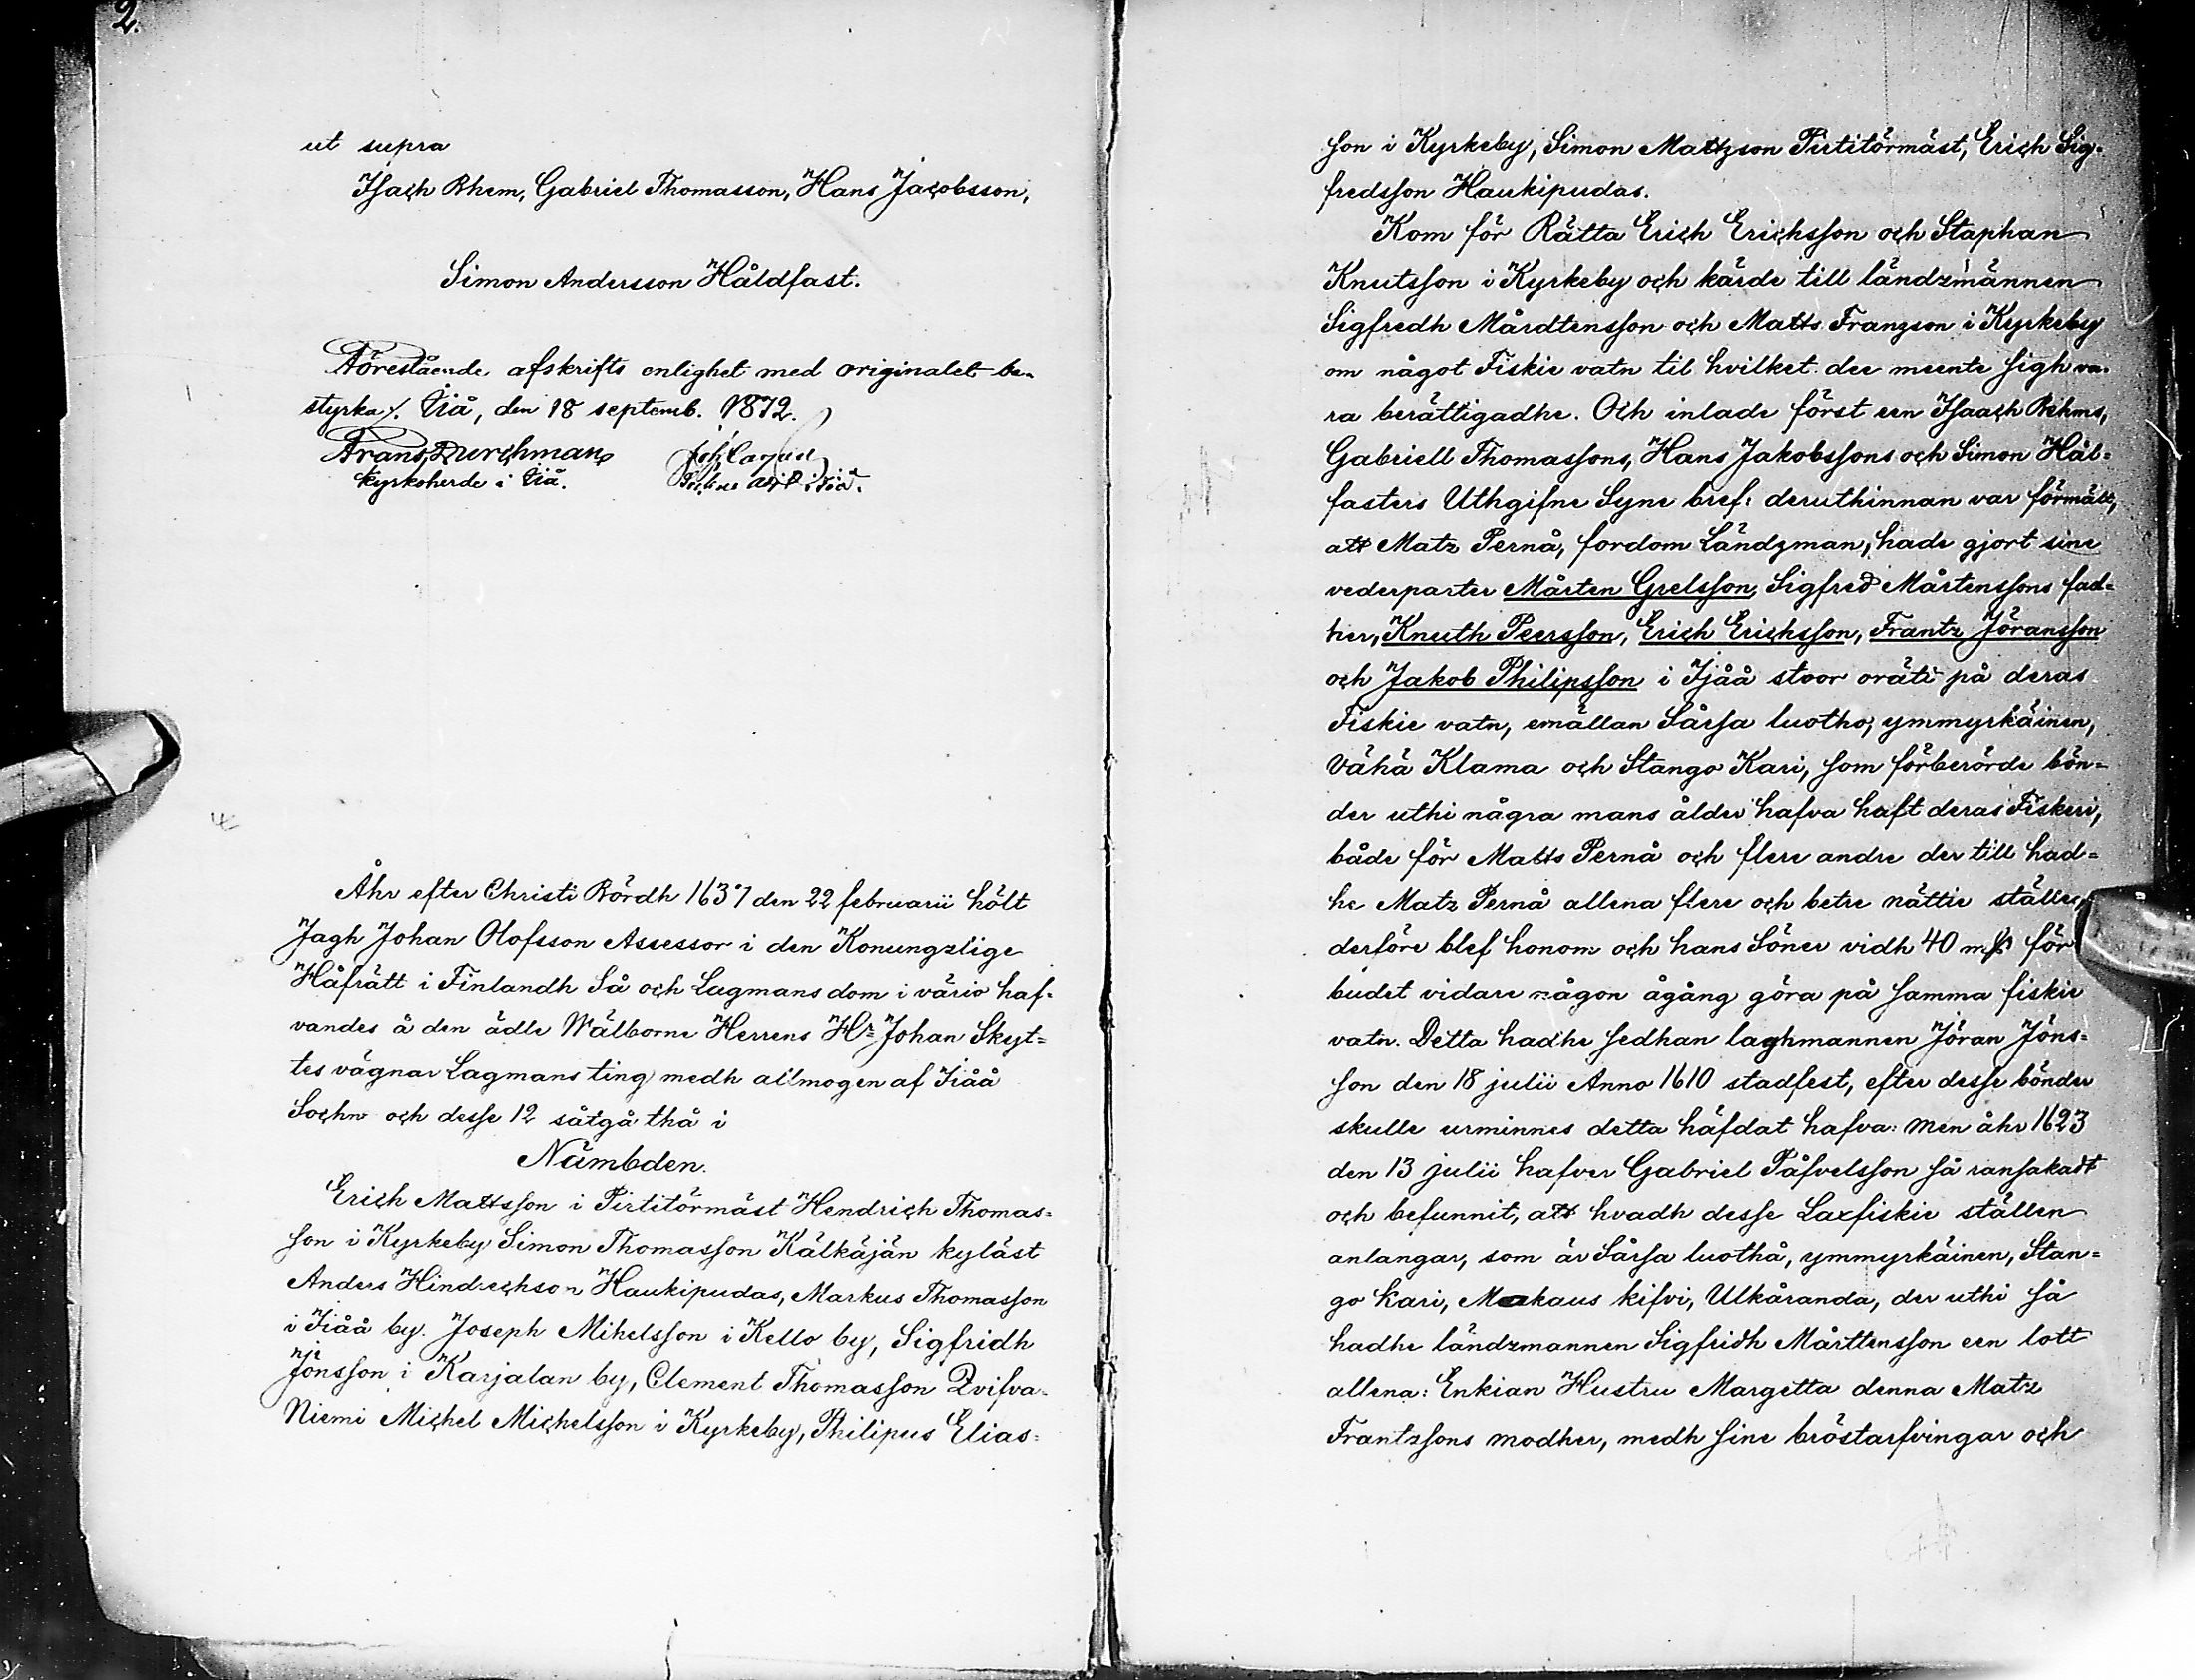 2.
ut supra
Isach Rhem, Gabriel Thomasson, Hans Jacobsson,
Simon Andersson Håldfast.
Förestående afskrifts enlighet med originalet be-
styrka /. Iiå, den 18 septemb. 1872.
Frans Durchman
kyrkoherde i Iiå.
i Iiå.
Åhr efter Christi Bördh 1637 den 22 februarii hölt
Jagh Johan Olofsson Assessor i den Konungzlige
Håfrätt i Finlandh Så och Lagmans dom i värio haf-
vandes å den ädle Wälborne Herrens Hr Johan Skyt=
tes vägnar Lagmans ting medh allmogen af Iiåå
Sochn och desse 12 såtgå thå i
Nämbden.
Erich Mattsson i Pirtitörmäst Hendrich Thomas=
son i Kyrkeby Simon Thomasson Kälkäjän kyläst
Anders Hindrechson Haukipudas, Markus Thomasson
i Iiåå by. Joseph Mihelsson i Kello by, Sigfridh
Jönsson i Karjalan by, Clement Thomasson Qvifva-
Niemi Michel Michelsson i Kyrkeby, Philipus Elias=
son i Kyrkeby, Simon Matzson Pirtitörmäst, Erich Sig-
fredsson Haukipudas.
Kom för Rätta Erich Erichsson och Staphan
Knutsson i Kyrkeby och kärde till ländzmännen
Sigfredh Mårdtensson och Matts Franzson i Kyrkeby
om något Fiskie vatn til hvilket dee meente sigh va-
ra berättigadhe. Och inlade först een Isaach Rehms,
Gabriell Thomassons, Hans Jakobssons och Simon Hål=
fasters Uthgifne Syne bref: deruthinnan var förmält,
att Matz Pernå, fordom Ländzman, hade gjort sine
vederparter Mårten Grelsson, Sigfred Mårtenssons fad=
her, Knuth Peersson, Erich Erichsson, Frantz Jöransson
och Jakob Philipsson i Ijåå stoor orätt på deras
Fiskie vatn, emällan Sårsa luotho, ymmyrkäinen,
Vähä Klama och Stango Kari, som förberörde bön=
der uthi några mans ålder hafva haft deras Fiskeri,
både för Matts Pernå och flere andre der till had=
he Matz Pernå allena flere och betre nättie ställen,
derföre blef honom och hans Söner vidh 40 mk för
budet vidare någon ågång göra på samma fiskie
vatn. Detta hadhe sedhan laghmannen Jöran Jöns=
son den 18 julii Anno 1610 stadfest, efter desse bönder
skulle urminnes detta häfdat hafva: men åhr 1623
den 13 julii hafver Gabriel Påfvelsson så ransakadt
och befunnit, att hvadh desse Laxfiskie ställen
anlangar, som är Sårsa luothå, ymmyrkäinen, Stan=
go Kari, Makaus kifvi, Ulkåranda, der uthi så
hadhe ländzmannen Sigfridh Mårttensson een lott
allena: Enkian Hustru Margetta denna Matz
Frantzsons modher, medh sine bröstarfvingar och